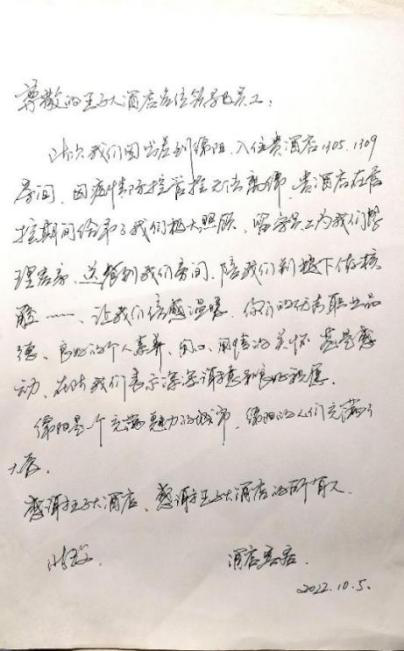 尊敬的王子大酒店各位领导及员工：
此次我们因出差到绵阳，入住贵酒店1305、1309
房间，因疫情防控管控无法离绵，贵酒店在管
控期间给予了我们极大照顾，酒店员工为我们整
理客房，送餐到我们房间，陪我们到楼下做核
酸……，让我们倍感温暖。你们的优秀职业品
德、良好的个人素养，用心、用情的关怀 甚是感
动，在此我们表示深深谢意和良好祝愿。
绵阳是一个充满魅力的城市，绵阳的人们充满了
大爱。
感谢王子大酒店，感谢王子大酒店的所有人
酒店客居
2022.10.5.